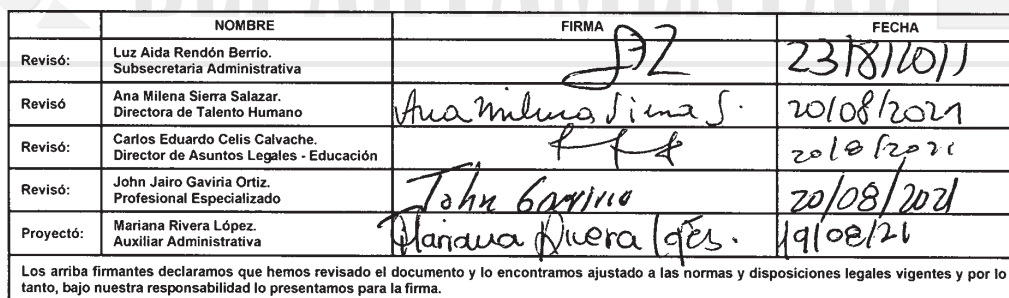 NOMBRE FIRMA FECHA
Revisó: Luz Aida Rendón Berrío. Subsecretaria Administrativa 23/8/2021
Revisó Ana Milena Sierra Salazar. Directora de Talento Humano Ana Milena Sierra S. 20/08/2021
Revisó: Carlos Eduardo Celis Calvache. Director de Asuntos Legales - Educación 20/8/2021
Revisó: John Jairo Gaviria Ortiz. Profesional Especializado John Gaviria 20/08/2021
Proyectó: Mariana Rivera López. Auxiliar Administrativa Mariana Rivera López. 19/08/21
Los arriba firmantes declaramos que hemos revisado el documento y lo encontramos ajustado a las normas y disposiciones legales vigentes y por lo
tanto, bajo nuestra responsabilidad lo presentamos para la firma.